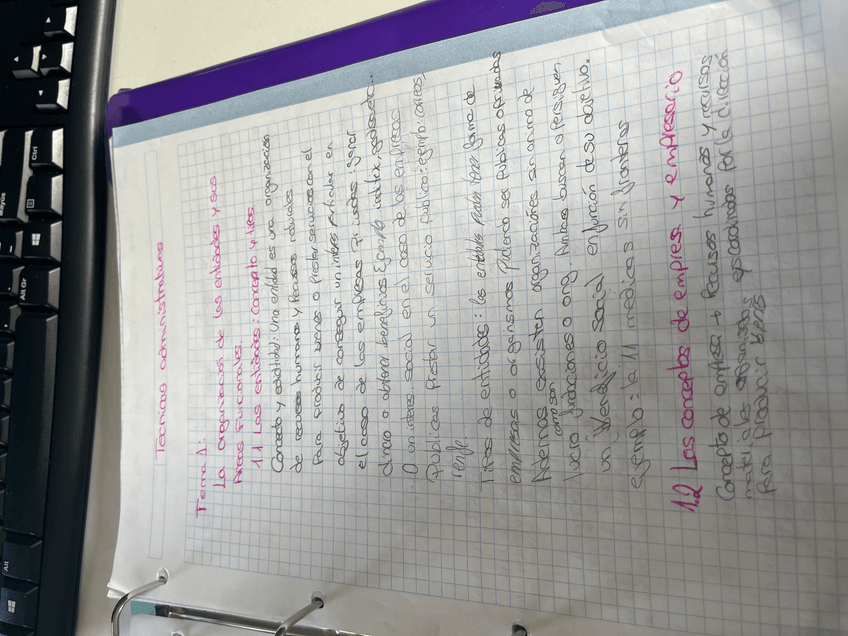 Técnicas administrativas
Tema 1:
La organización de las entidades y sus
Areas Funcionales.
1.1 Las entidades: Concepto y tipos.
Concepto y entidad: Una entidad es una organización
de recursos humanos y recursos naturales
Para Producir bienes o Prestar servicios con el
objetivo de conseguir un interes Particular en
el caso de las empresas Privadas: ganar
dinero o obtener beneficios. Ejemplo:
O un interes social en el caso de las empresas
Públicas Prestar un servicio Público: ejemplo: correos,
renfe
Tipos de entidades: las entidades Pueden tener forma de
empresas o organismos Pudiendo ser Públicas o Privadas
Ademas existen organizaciones sin animo de
como son
lucro fundaciones o ong. Ambas buscan o Persiguen
un Beneficio social en función de su objetivo.
ejemplo: la 11 médicos sin fronteras
1.2 Los conceptos de empresa y empresario
Concepto de empresa → Recursos humanos y recursos
materiales organizados por la dirección
Para producir bienes
Ctrl
Alt Gr
Alt